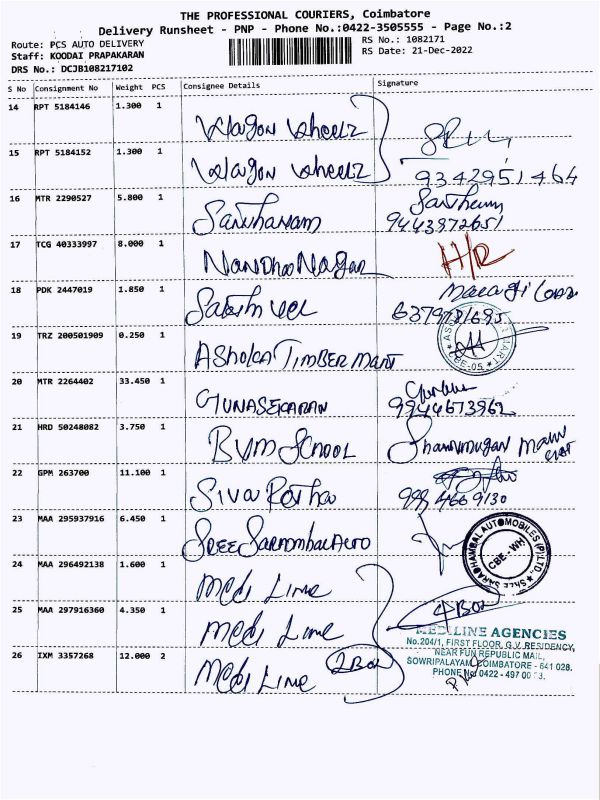 THE PROFESSIONAL COURIERS, Coimbatore
Delivery Runsheet - PNP - Phone No.:0422-3505555 - Page No.:2
Route: PCS AUTO DELIVERY
RS No.: 1082171
Staff: KOODAI PRAPAKARAN
RS Date: 21-Dec-2022
DRS No.: DCJB108217102
S No Consignment No Weight PCS Consignee Details Signature
14 RPT 5184146 1.300 1 Wagon Wheelz
15 RPT 5184152 1.300 1 Wagon Wheelz 9342951464
16 MTR 2290527 5.800 1 Santhanam 9443972651
17 TCG 40333997 8.000 1 Nandhoo Nagar H/R
18 PDK 2447019 1.850 1
19 TRZ 200501909 0.250 1 Ashoka Timber Mart
CBE-05
20 MTR 2264402 33.450 1 Gunasekaran 9944673962
21 HRD 50248082 3.750 1 BVM School
22 GPM 263700 11.100 1 Siva
23 MAA 295937916 6.450 1 Sree
SHREE SARADHAMBAL AUTOMOBILES (P) LTD.
CBE - WH
24 MAA 296492138 1.600 1 Medi Line
25 MAA 297916360 4.350 1 Medi Line
26 IXM 3357268 12.000 2 Medi Line 2 Box
4 Box
MEDILINE AGENCIES
No.204/1, FIRST FLOOR, G.V. RESIDENCY,
NEAR FUN REPUBLIC MALL,
SOWRIPALAYAM, COIMBATORE - 641 028.
PHONE No 0422 - 497